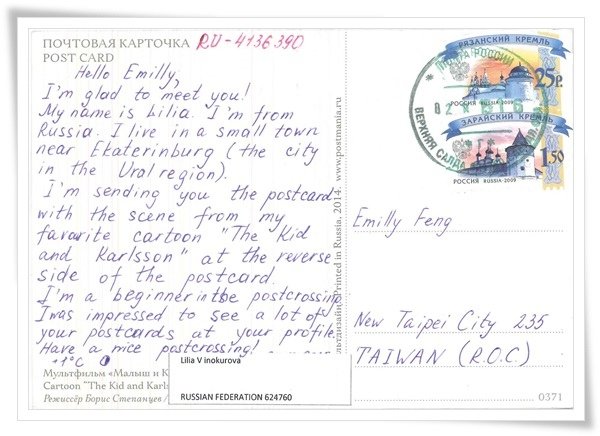 ПОЧТОВАЯ КАРТОЧКА
POST CARD
RU-4136390
Hello Emilly,
I'm glad to meet you!
My name is Lilia. I'm from
Russia. I live in a small town
near Ekaterinburg (the city
in the Ural region).
I'm sending you the postcard
with the scene from my
favarite cartoon "The Kid
and Karlsson" at the reverse
side of the postcard.
I'm a beginner in the postcrossing
I was impressed to see a lot of
your postcards at your profile.
Have a nice postcrossing!
Мультфильм «Малыш и К
Cartoon "The Kid and Karls
Режиссёр Борис Степанцев /
Lilia V inokurova
RUSSIAN FEDERATION 624760
Printed in Russia, 2014. www.postmania.ru
РЯЗАНСКИЙ КРЕМЛЬ
25р.
РОССИЯ RUSSIA·2009
ЗАРАЙСКИЙ КРЕМЛЬ
1.50
РОССИЯ RUSSIA·2009
ПОЧТА РОССИИ
ВЕРХНЯЯ САЛДА
Emilly Feng
New Taipei City 235
TAIWAN (R.O.C)
0371